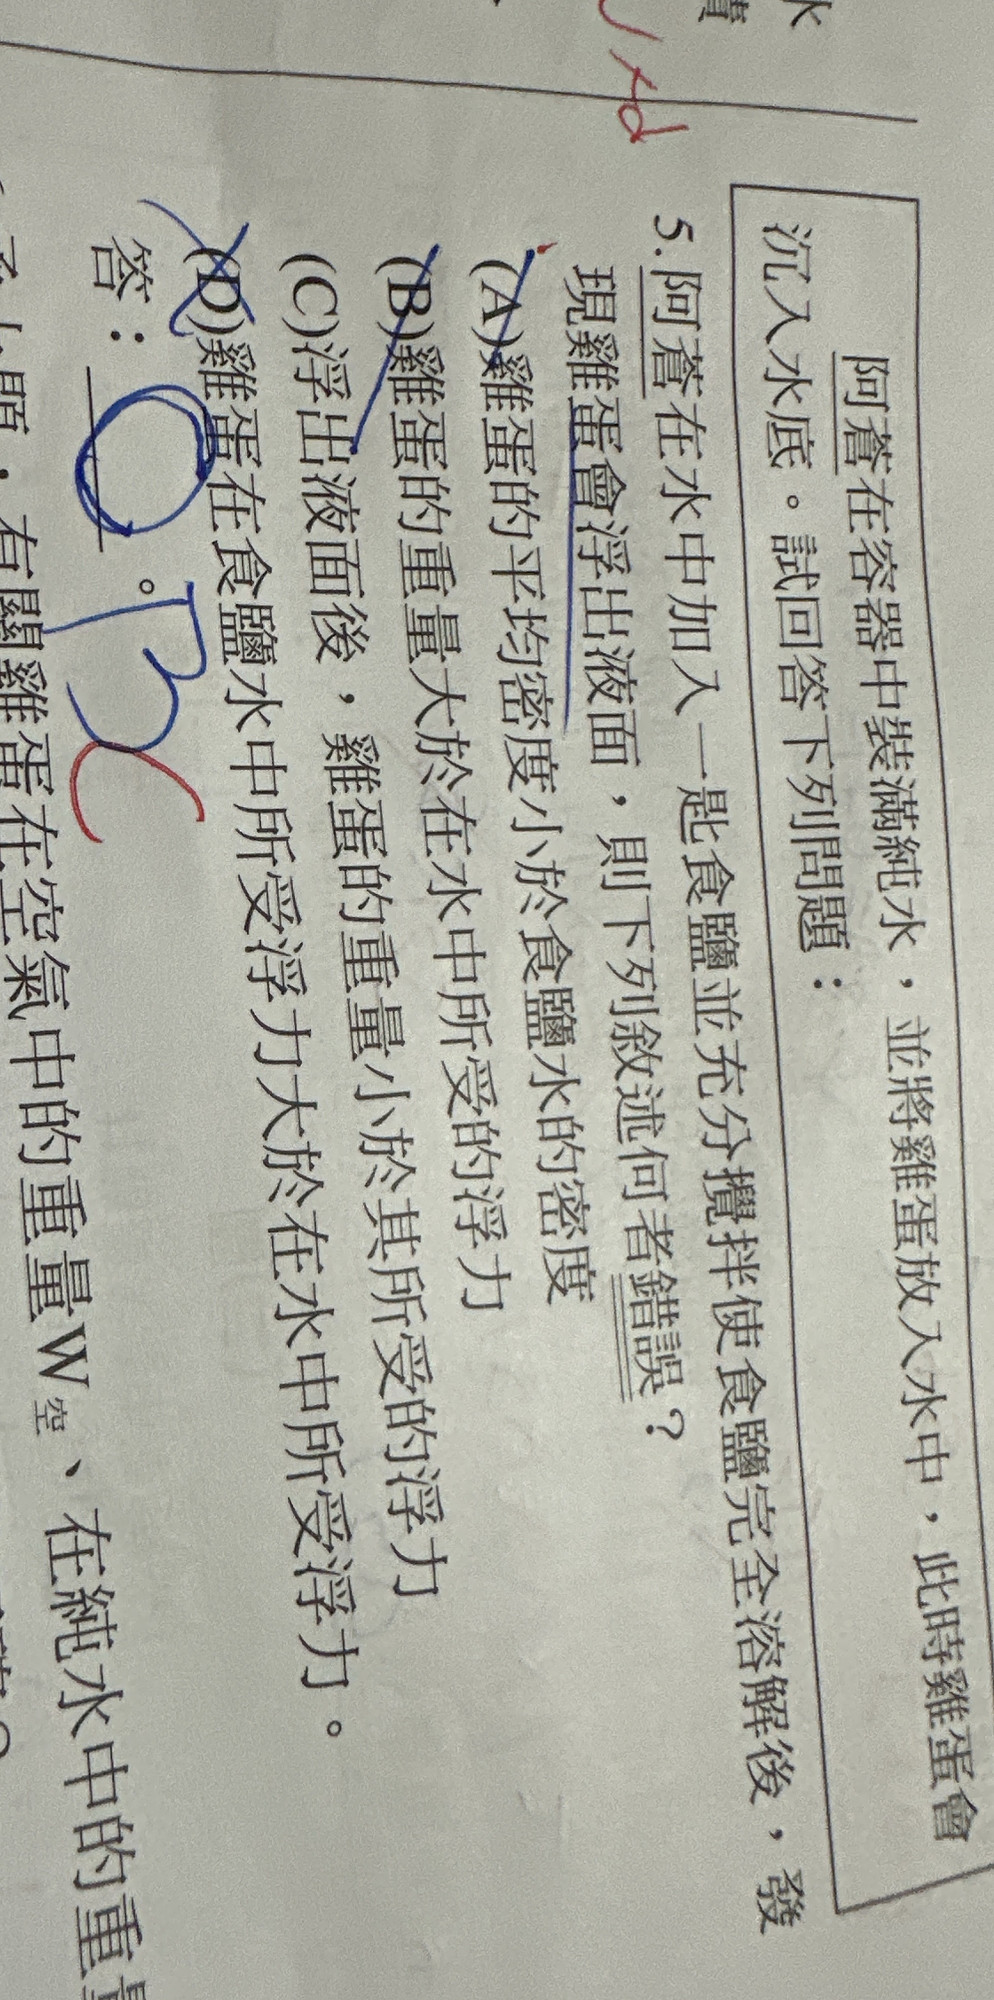 水
阿蒼在容器中裝滿純水，並將雞蛋放入水中，此時雞蛋會
沉入水底。試回答下列問題：
5.阿蒼在水中加入一匙食鹽並充分攪拌使食鹽完全溶解後，發
現雞蛋會浮出液面，則下列敘述何者錯誤？
(A)雞蛋的平均密度小於食鹽水的密度
(B)雞蛋的重量大於在水中所受的浮力
(C)浮出液面後，雞蛋的重量小於其所受的浮力
(D)雞蛋在食鹽水中所受浮力大於在水中所受浮力。
答：
。
有關雞蛋在空氣中的重量W空、在純水中的重量